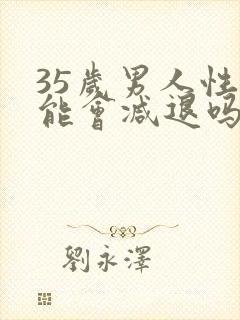 35歲男人性
能會減退吗
劉永澤